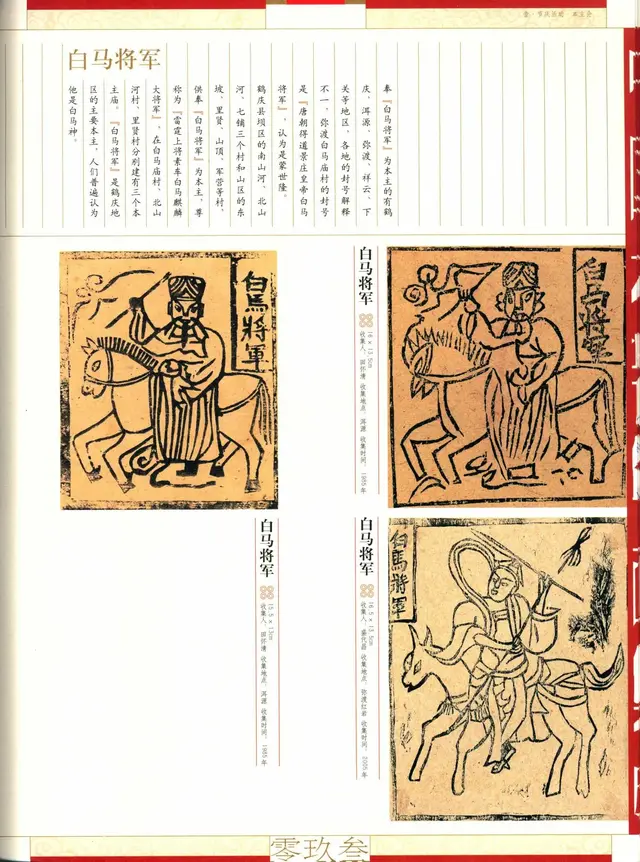 白马将军
奉『白马将军』为本主的有鹤
庆、洱源、弥渡、祥云、下
关等地区，各地的封号解释
不一，弥渡白马庙村的封号
是『唐朝得道景庄皇帝白马
将军』，认为是蒙世隆。
鹤庆县坝区的南山河、北山
河、七铺三个村和山区的东
坡、里贤、山顶、军营等村，
供奉『白马将军』为本主，尊
称为『雷霆上将素车白马麒麟
大将军』，在白马庙村、北山
河村、里贤村分别建有三个本
主庙。『白马将军』是鹤庆地
区的主要本主，人们普遍认为
他是白马神。
白马将军
白马将军
16×13.5cm
收集人：田怀清 收集地点：洱源 收集时间：1985年
白馬將軍
白馬將軍
白马将军
16.5×13.5cm
收集地点：弥渡红岩 收集时间：
白马将军
15.5×13cm
收集人：田怀清 收集地点：洱源 收集时间：1985年
零玖叁